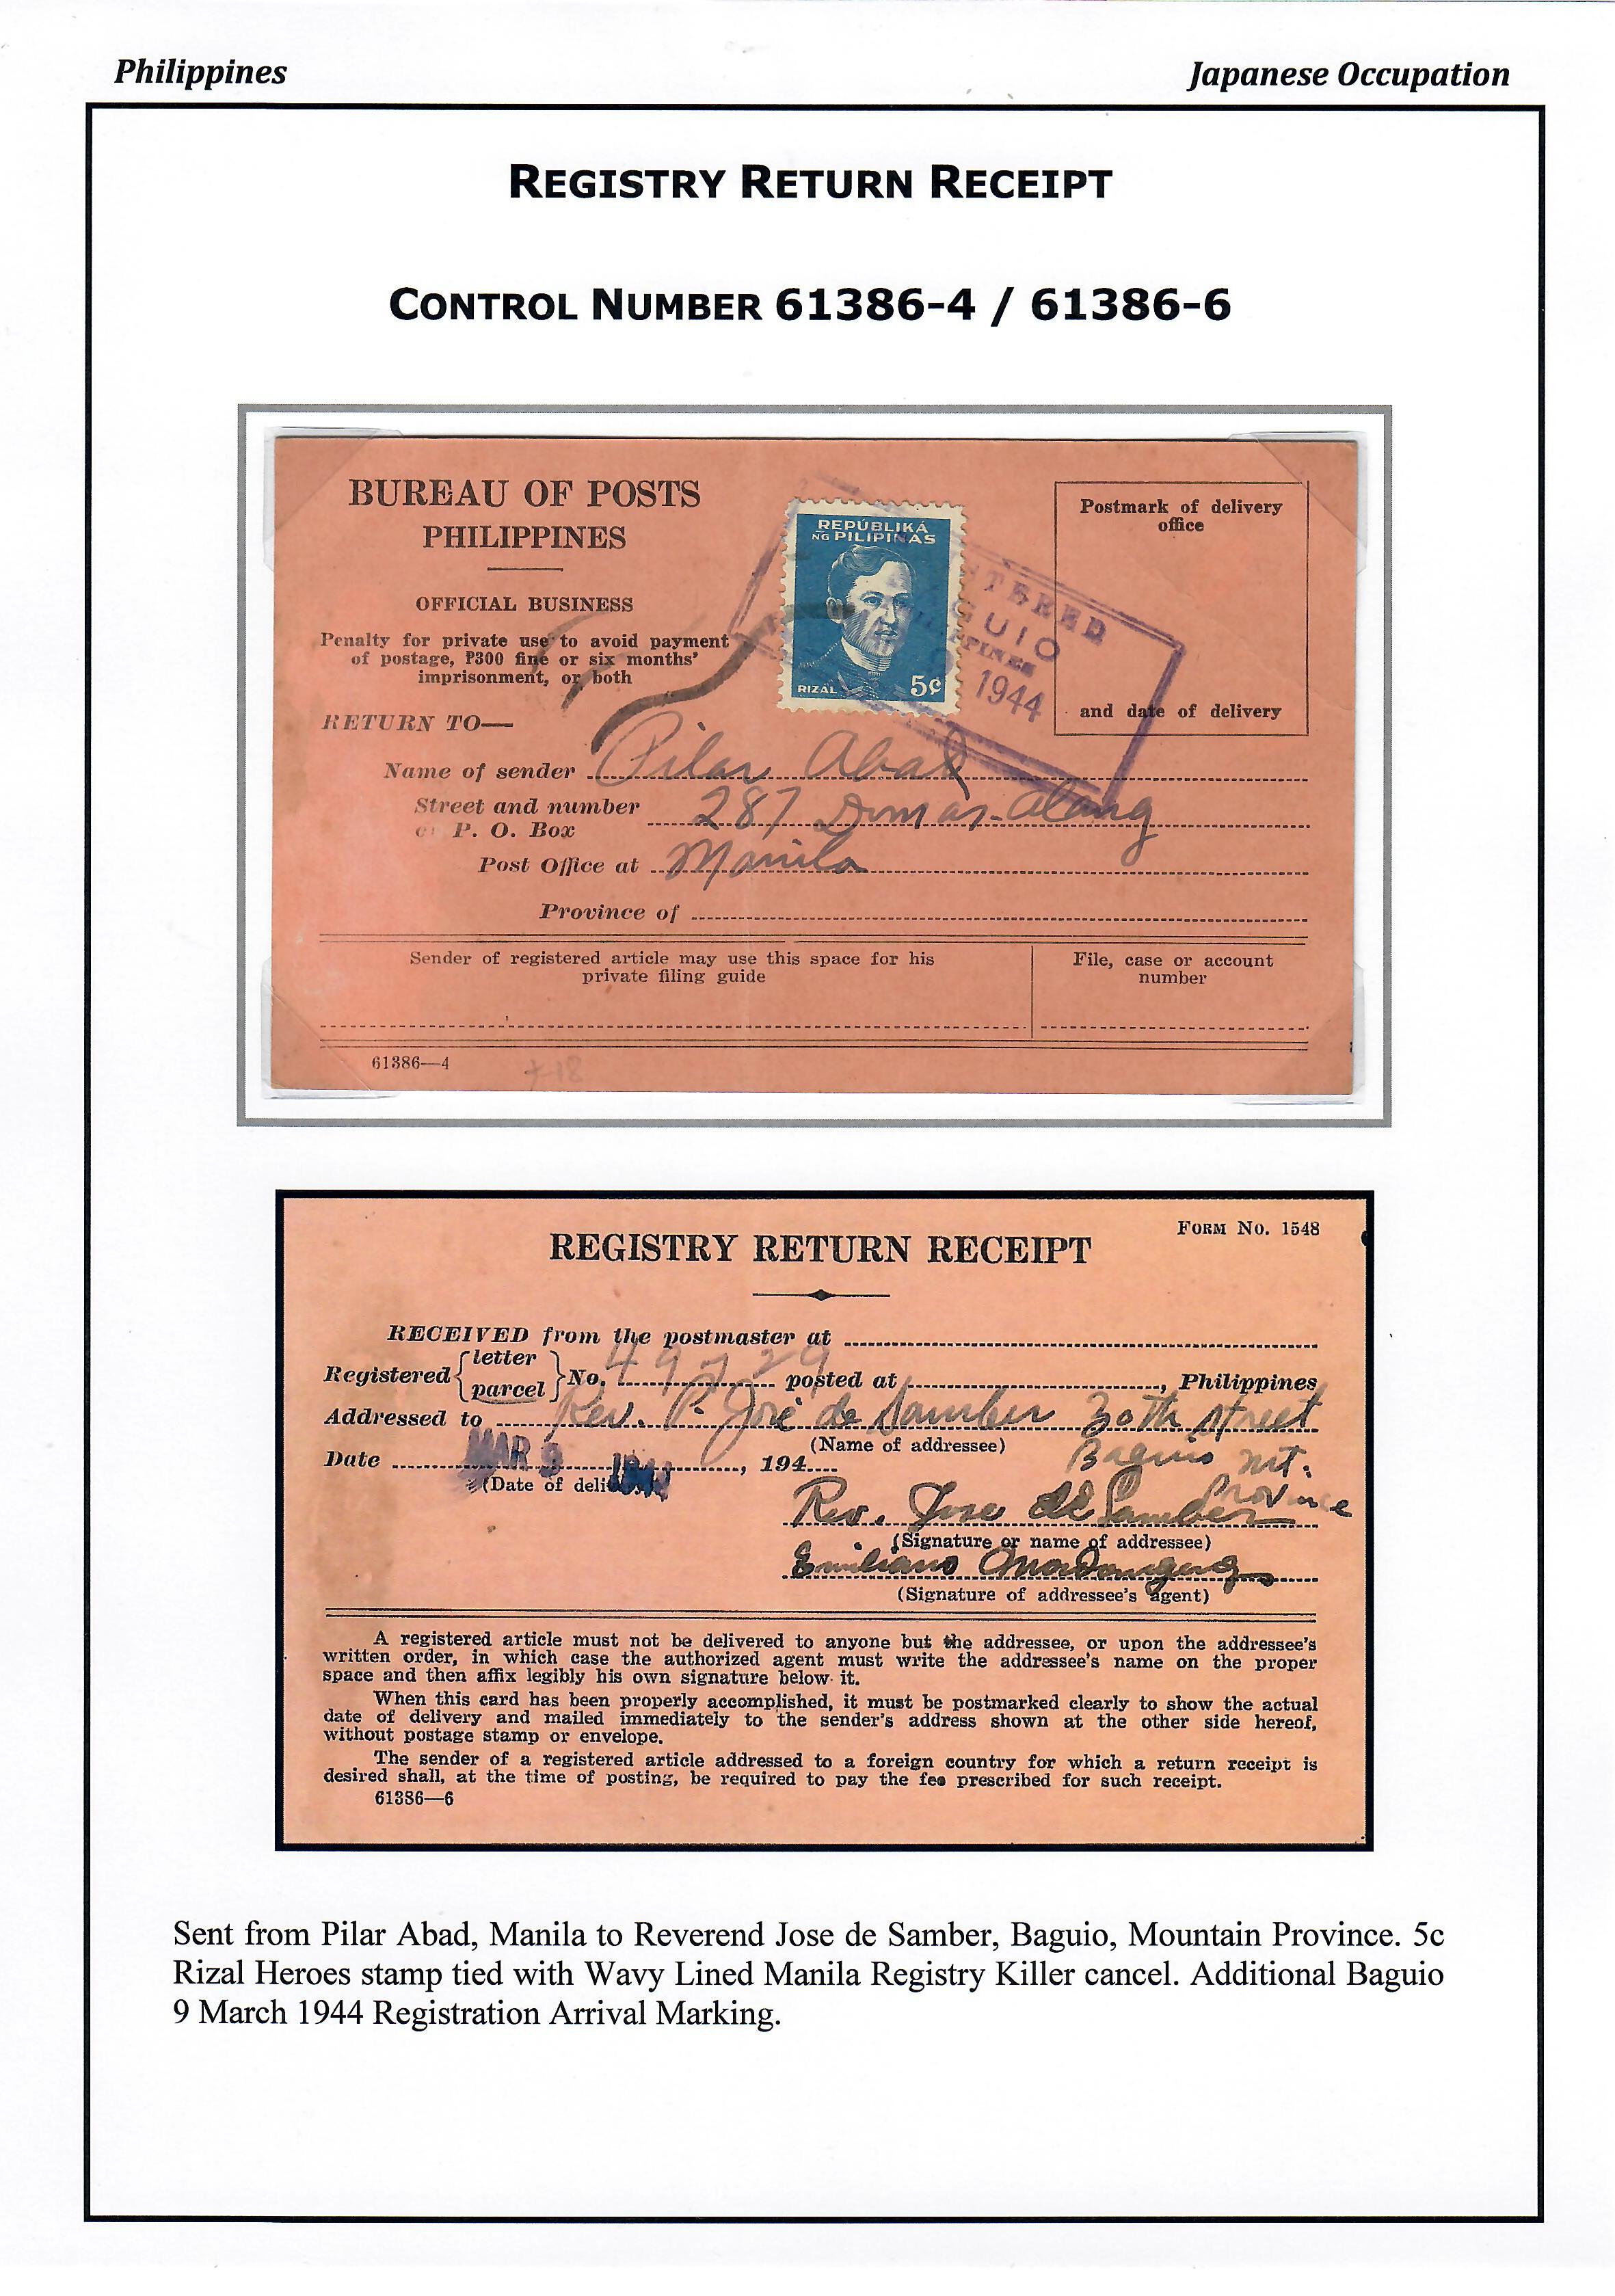 Philippines
Japanese Occupation
REGISTRY RETURN RECEIPT
CONTROL NUMBER 61386-4 / 61386-6
BUREAU OF POSTS
PHILIPPINES
OFFICIAL BUSINESS
Penalty for private use to avoid payment
of postage, ₱300 fine or six months'
imprisonment, or both
REPÚBLIKÁ
NG PILIPINAS
RIZAL 5¢
1944
Postmark of delivery
office
and date of delivery
RETURN TO—
Name of sender Pilar Abad
Street and number 287 Dimas-Alang
or P. O. Box
Post Office at Manila
Province of
Sender of registered article may use this space for his
private filing guide
File, case or account
number
61386—4
FORM NO. 1548
REGISTRY RETURN RECEIPT
RECEIVED from the postmaster at
Registered { letter parcel } No. 49729 posted at , Philippines
Addressed to Rev. P. José de Samber 30th street
(Name of addressee)
Baguio Mt.
Province
Date MAR 9 , 194
(Date of delivery)
Rev. Jose de Samber
(Signature or name of addressee)
Emiliano
(Signature of addressee's agent)
A registered article must not be delivered to anyone but the addressee, or upon the addressee's
written order, in which case the authorized agent must write the addressee's name on the proper
space and then affix legibly his own signature below it.
When this card has been properly accomplished, it must be postmarked clearly to show the actual
date of delivery and mailed immediately to the sender's address shown at the other side hereof,
without postage stamp or envelope.
The sender of a registered article addressed to a foreign country for which a return receipt is
desired shall, at the time of posting, be required to pay the fee prescribed for such receipt.
61386—6
Sent from Pilar Abad, Manila to Reverend Jose de Samber, Baguio, Mountain Province. 5c
Rizal Heroes stamp tied with Wavy Lined Manila Registry Killer cancel. Additional Baguio
9 March 1944 Registration Arrival Marking.